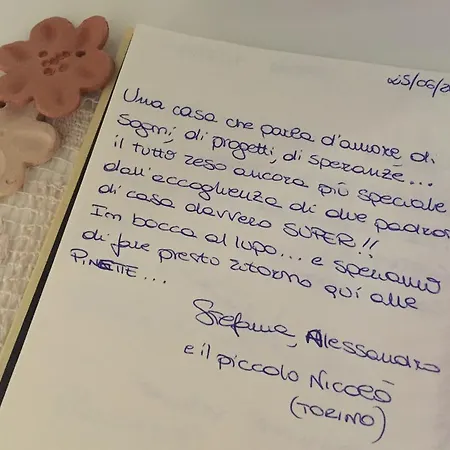 25/06/2
Una casa che parla d'amore, di
sogni, di progetti, di speranze...
il tutto reso ancora più speciale
dall'accoglienza di due padron
di casa davvero SUPER!!
Im bocca al lupo... e speriamo
di fare presto ritorno qui alle
PINETTE...
Stefania, Alessandro
e il piccolo Niccolò
(TORINO)